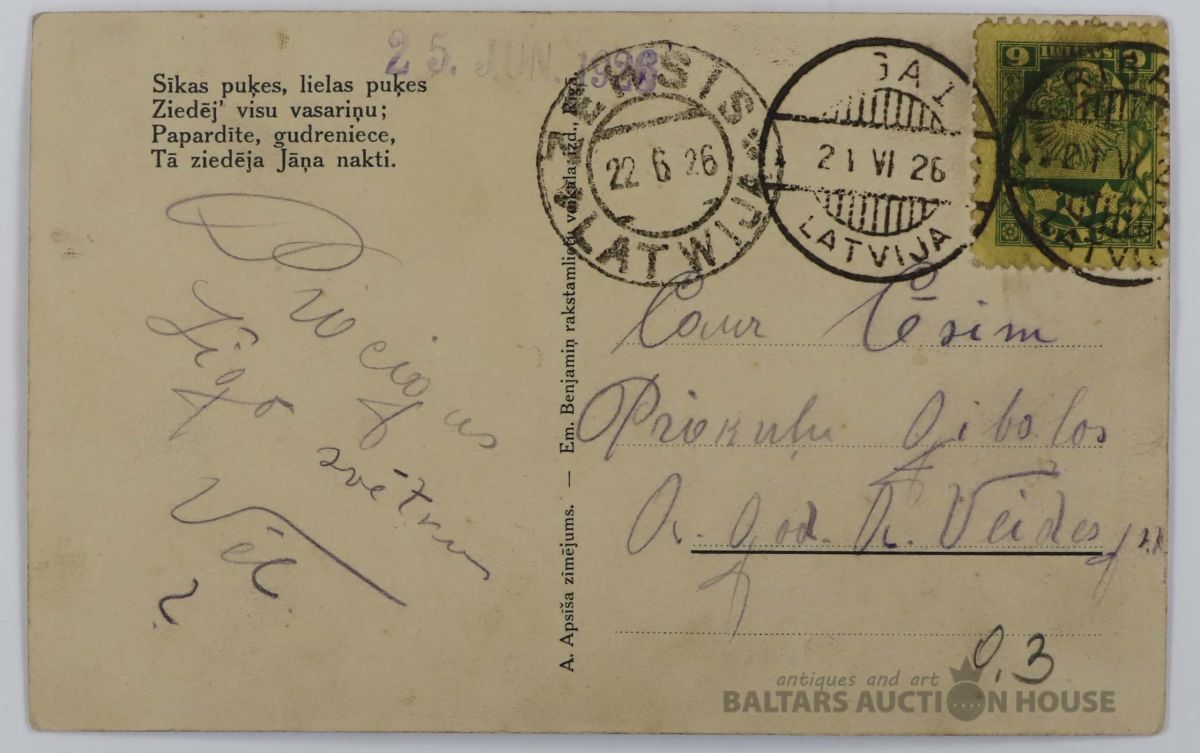 25. JUN. 1926
Sīkas puķes, lielas puķes
Ziedēj' visu vasariņu;
Papardīte, gudreniece,
Tā ziedēja Jāņa nakti.
Līgo
svētku
Vēl
?
A. Apsīša zīmējums. — Em. Benjamiņ rakstamlietu veikala izd., Rīgā.
ZEHSIS
22 6 26
LATWIJA
GA 1
21 VI 26
LATVIJA
6 6
LATVI
Caur Cēsim
Priekuļu
A. god. A. Veides
0.3
antiques and art
BALTARS AUCTION HOUSE